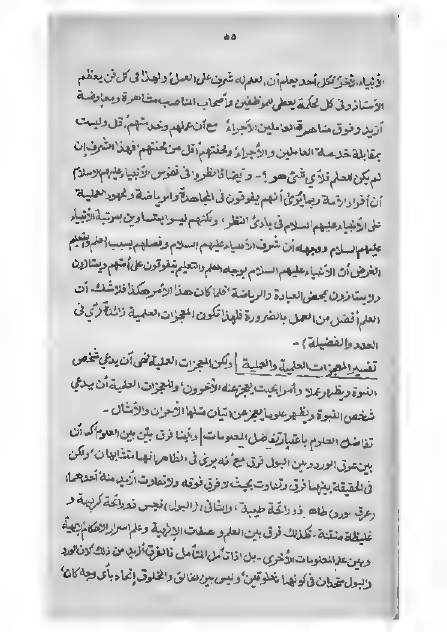 ٥٥
الأنبياء الأخر فكل أحد يعلم أن العلم له شرف على العمل ولهذا فى كل فن يعظم
الأستاذ و فى كل حكمة يعطى للموظفين وأصحاب المناصب مشاهرة ومعاوضة
أزيد وفوق مشاهرة العاملين الأجراء مع أن عملهم وخدمتهم قل وليست
بمقابلة خدمة العاملين والأجراء ومحنتهم أقل من محنتهم فهذا الشرف إن
لم يكن للعلم فلأي شئ هو؟ - وأيضا فانظروا فى نفوس الأنبياء عليهم السلام
أن أفراد الأمة ربما يرى أنهم يفوقون فى المجاهدة والرياضة والجهود العملية
على الأنبياء عليهم السلام فى بادئ النظر، ولكنهم ليسوا بمتساوين بمرتبة الأنبياء
عليهم السلام ووجهه أن شرف الأنبياء عليهم السلام وفضلهم بسبب العلم والتعليم
الغرض أن الأنبياء عليهم السلام بوجه العلم والتعليم يتفوقون على أمتهم ويمتازون
ولا يمتازون بمحض العبادة والرياضة فلما كان هذا الأمر هكذا فلا شك أن
العلم أفضل من العمل بالضرورة فلهذا تكون المعجزات العلمية زائدة فى
العدد والفضيلة) -
تفسير المعجزات العلمية والعملية | ولكن المعجزات العملية فهى أن يدعي شخص
النبوة ويظهر عملا وأمرا بحيث يعجز عنه الآخرون، والمعجزات العلمية أن يدعي
شخص النبوة ويظهر علوما يعجز عن إتيان مثلها الأقران والأمثال -
تفاضل العلوم باعتبار تفاضل المعلومات | وأيضا فرق بين بين العلوم كما أن
بين عرق الورد وبين البول فرق مع أنه يرى فى الظاهر أنهما متشابهان، ولكن
فى الحقيقة بينهما فرق وتفاوت بحيث لا فرق فوقه ولا تفاوت أزيد منه أحدهما
(عرق ورد) طاهر ذو رائحة طيبة، والثانى (البول) نجس ذو رائحة كريهة و
غليظة منتنة - فكذلك فرق بين العلم و صفات الإلهية وعلم اسرار الأحكام الإلهية
وبين علم المعلومات الأخرى - بل إذا تأمل المتأمل فالفرق أزيد من ذلك لأن الورد
والبول متحدان فى كونهما مخلوقين، وليس بين الخالق والمخلوق إتحاد بأي وجه كان،